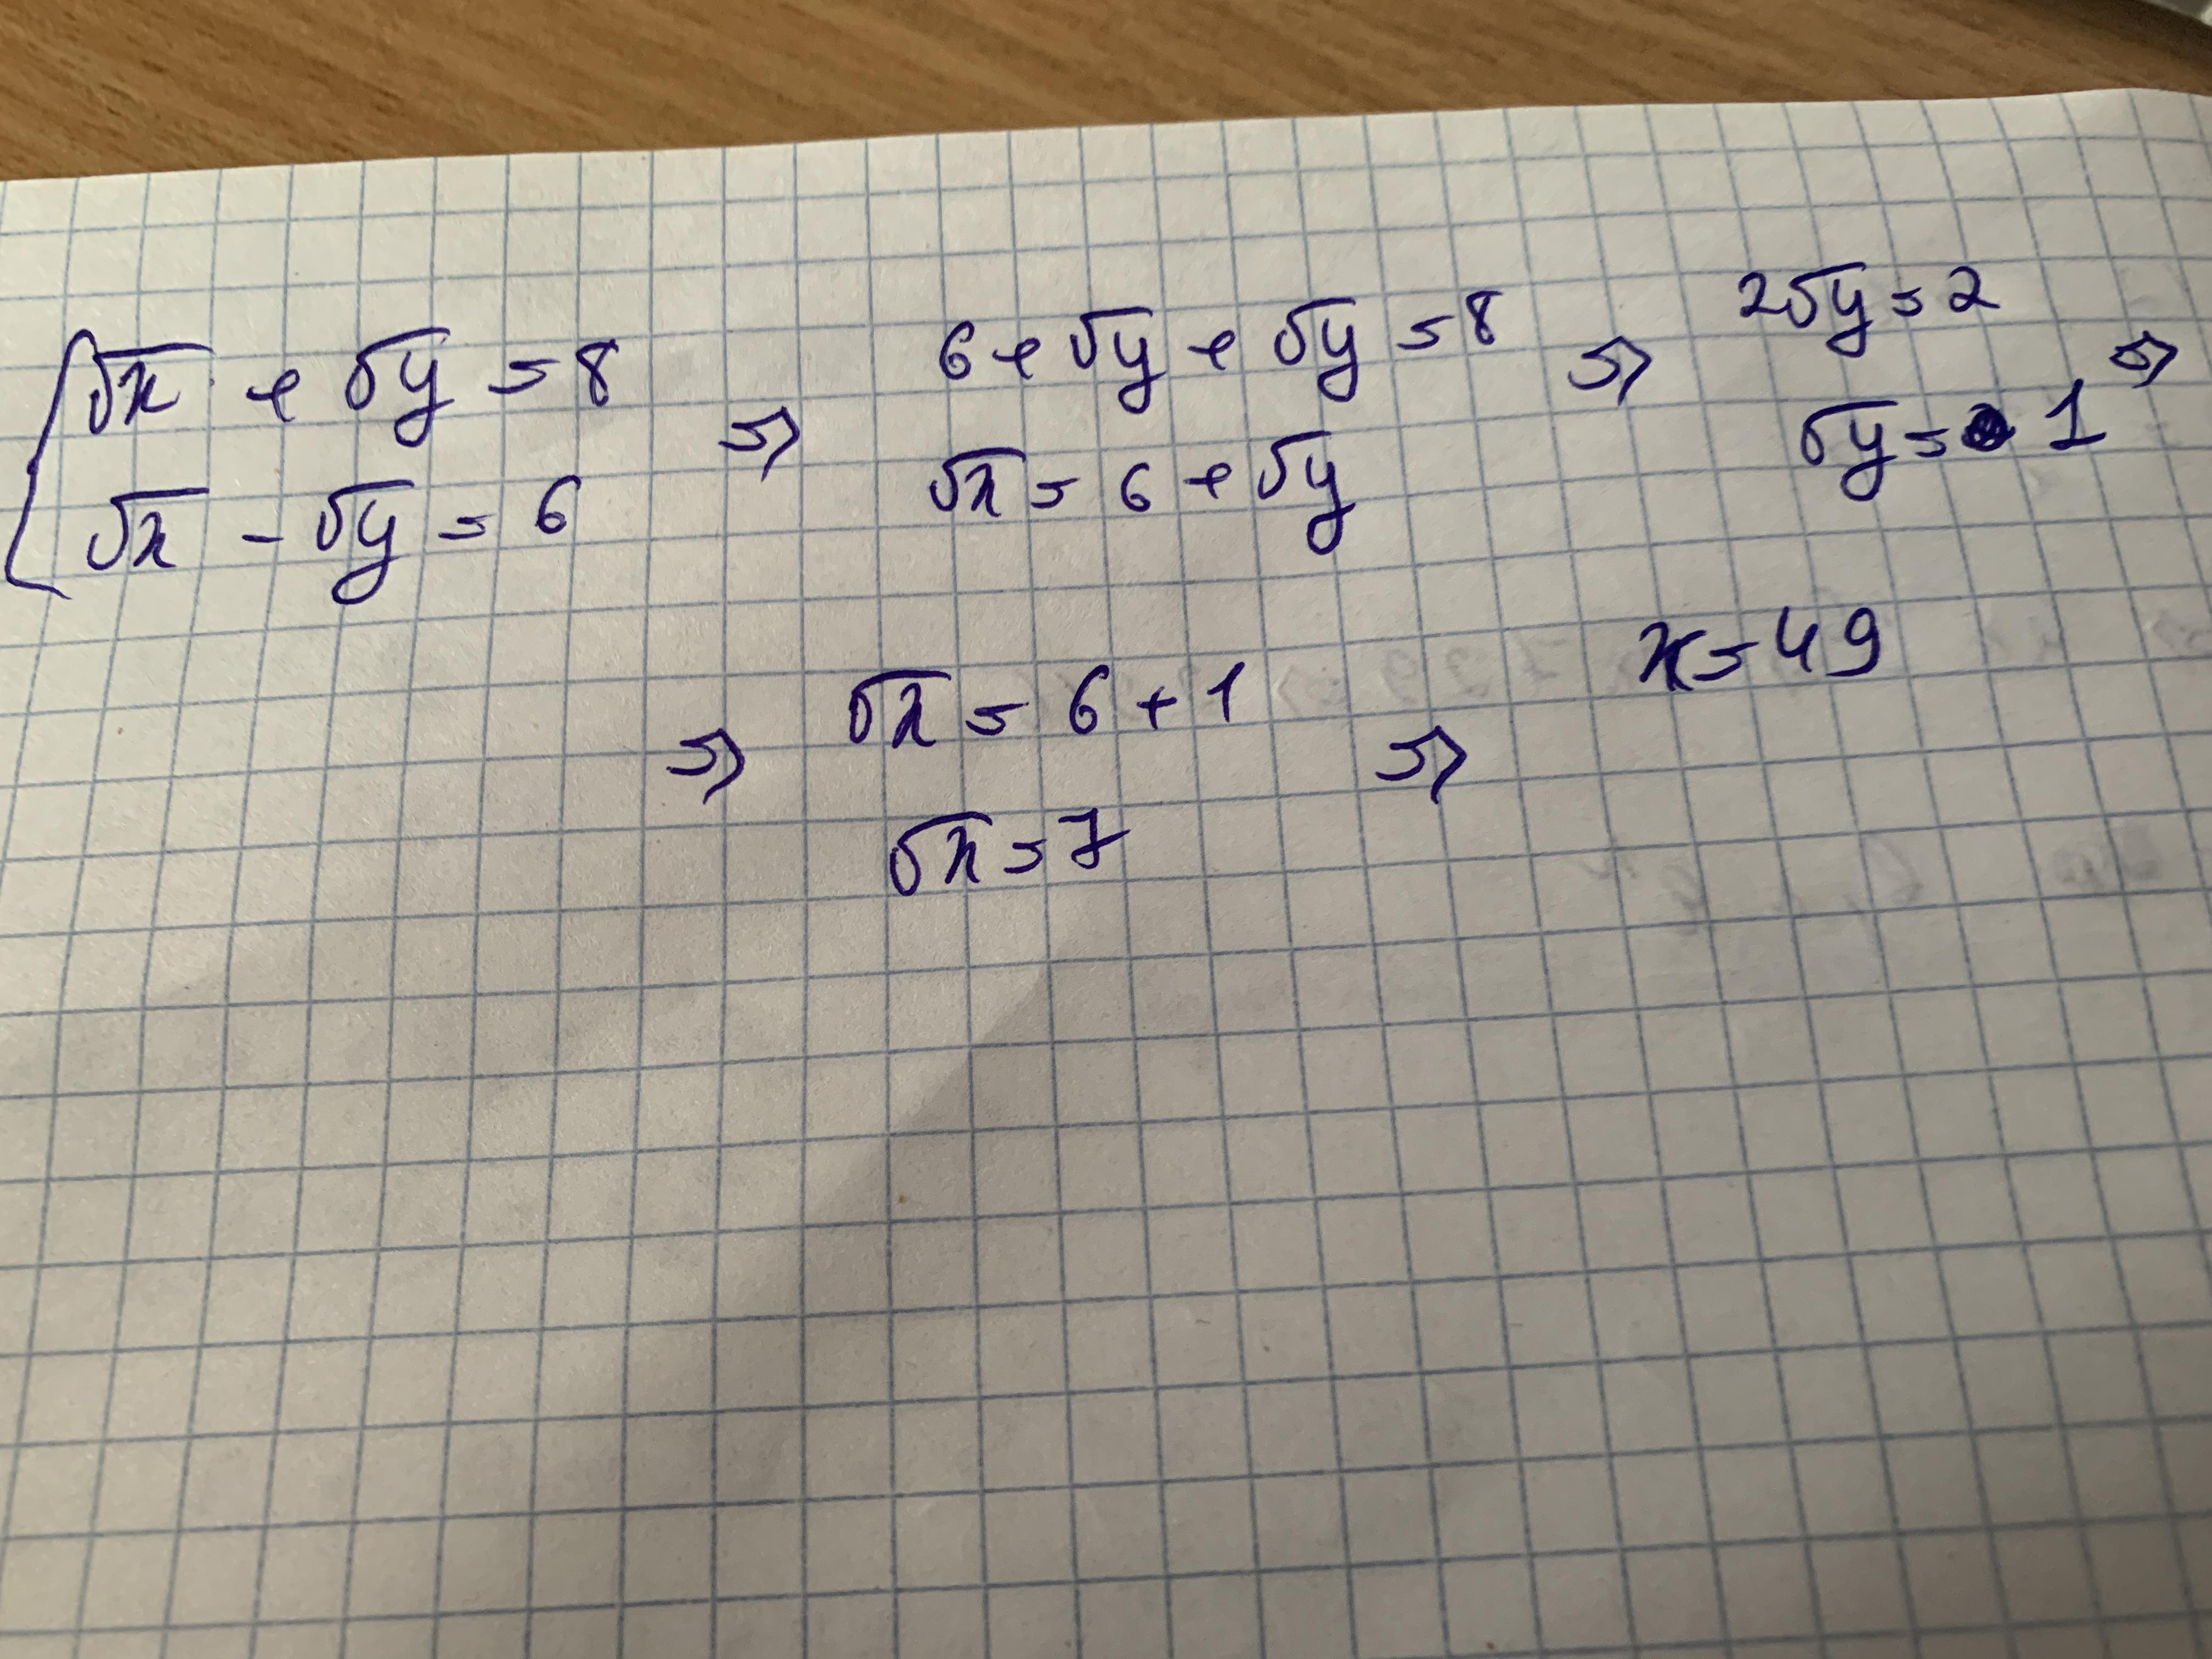 √x + √y = 8
√x - √y = 6
⇒
6 + √y + √y = 8
√x = 6 + √y
⇒
2√y = 2
√y = 1
⇒
⇒
√x = 6 + 1
√x = 7
⇒
x = 49